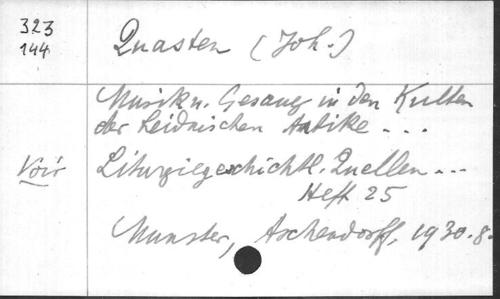 323
144
Quasten (Joh.)
Musik u. Gesang in den Kulten
der heidnischen Antike ...
Voir Liturgiegeschichtl. Quellen ...
Heft 25
Munster, Aschendorff, 1930. 8.